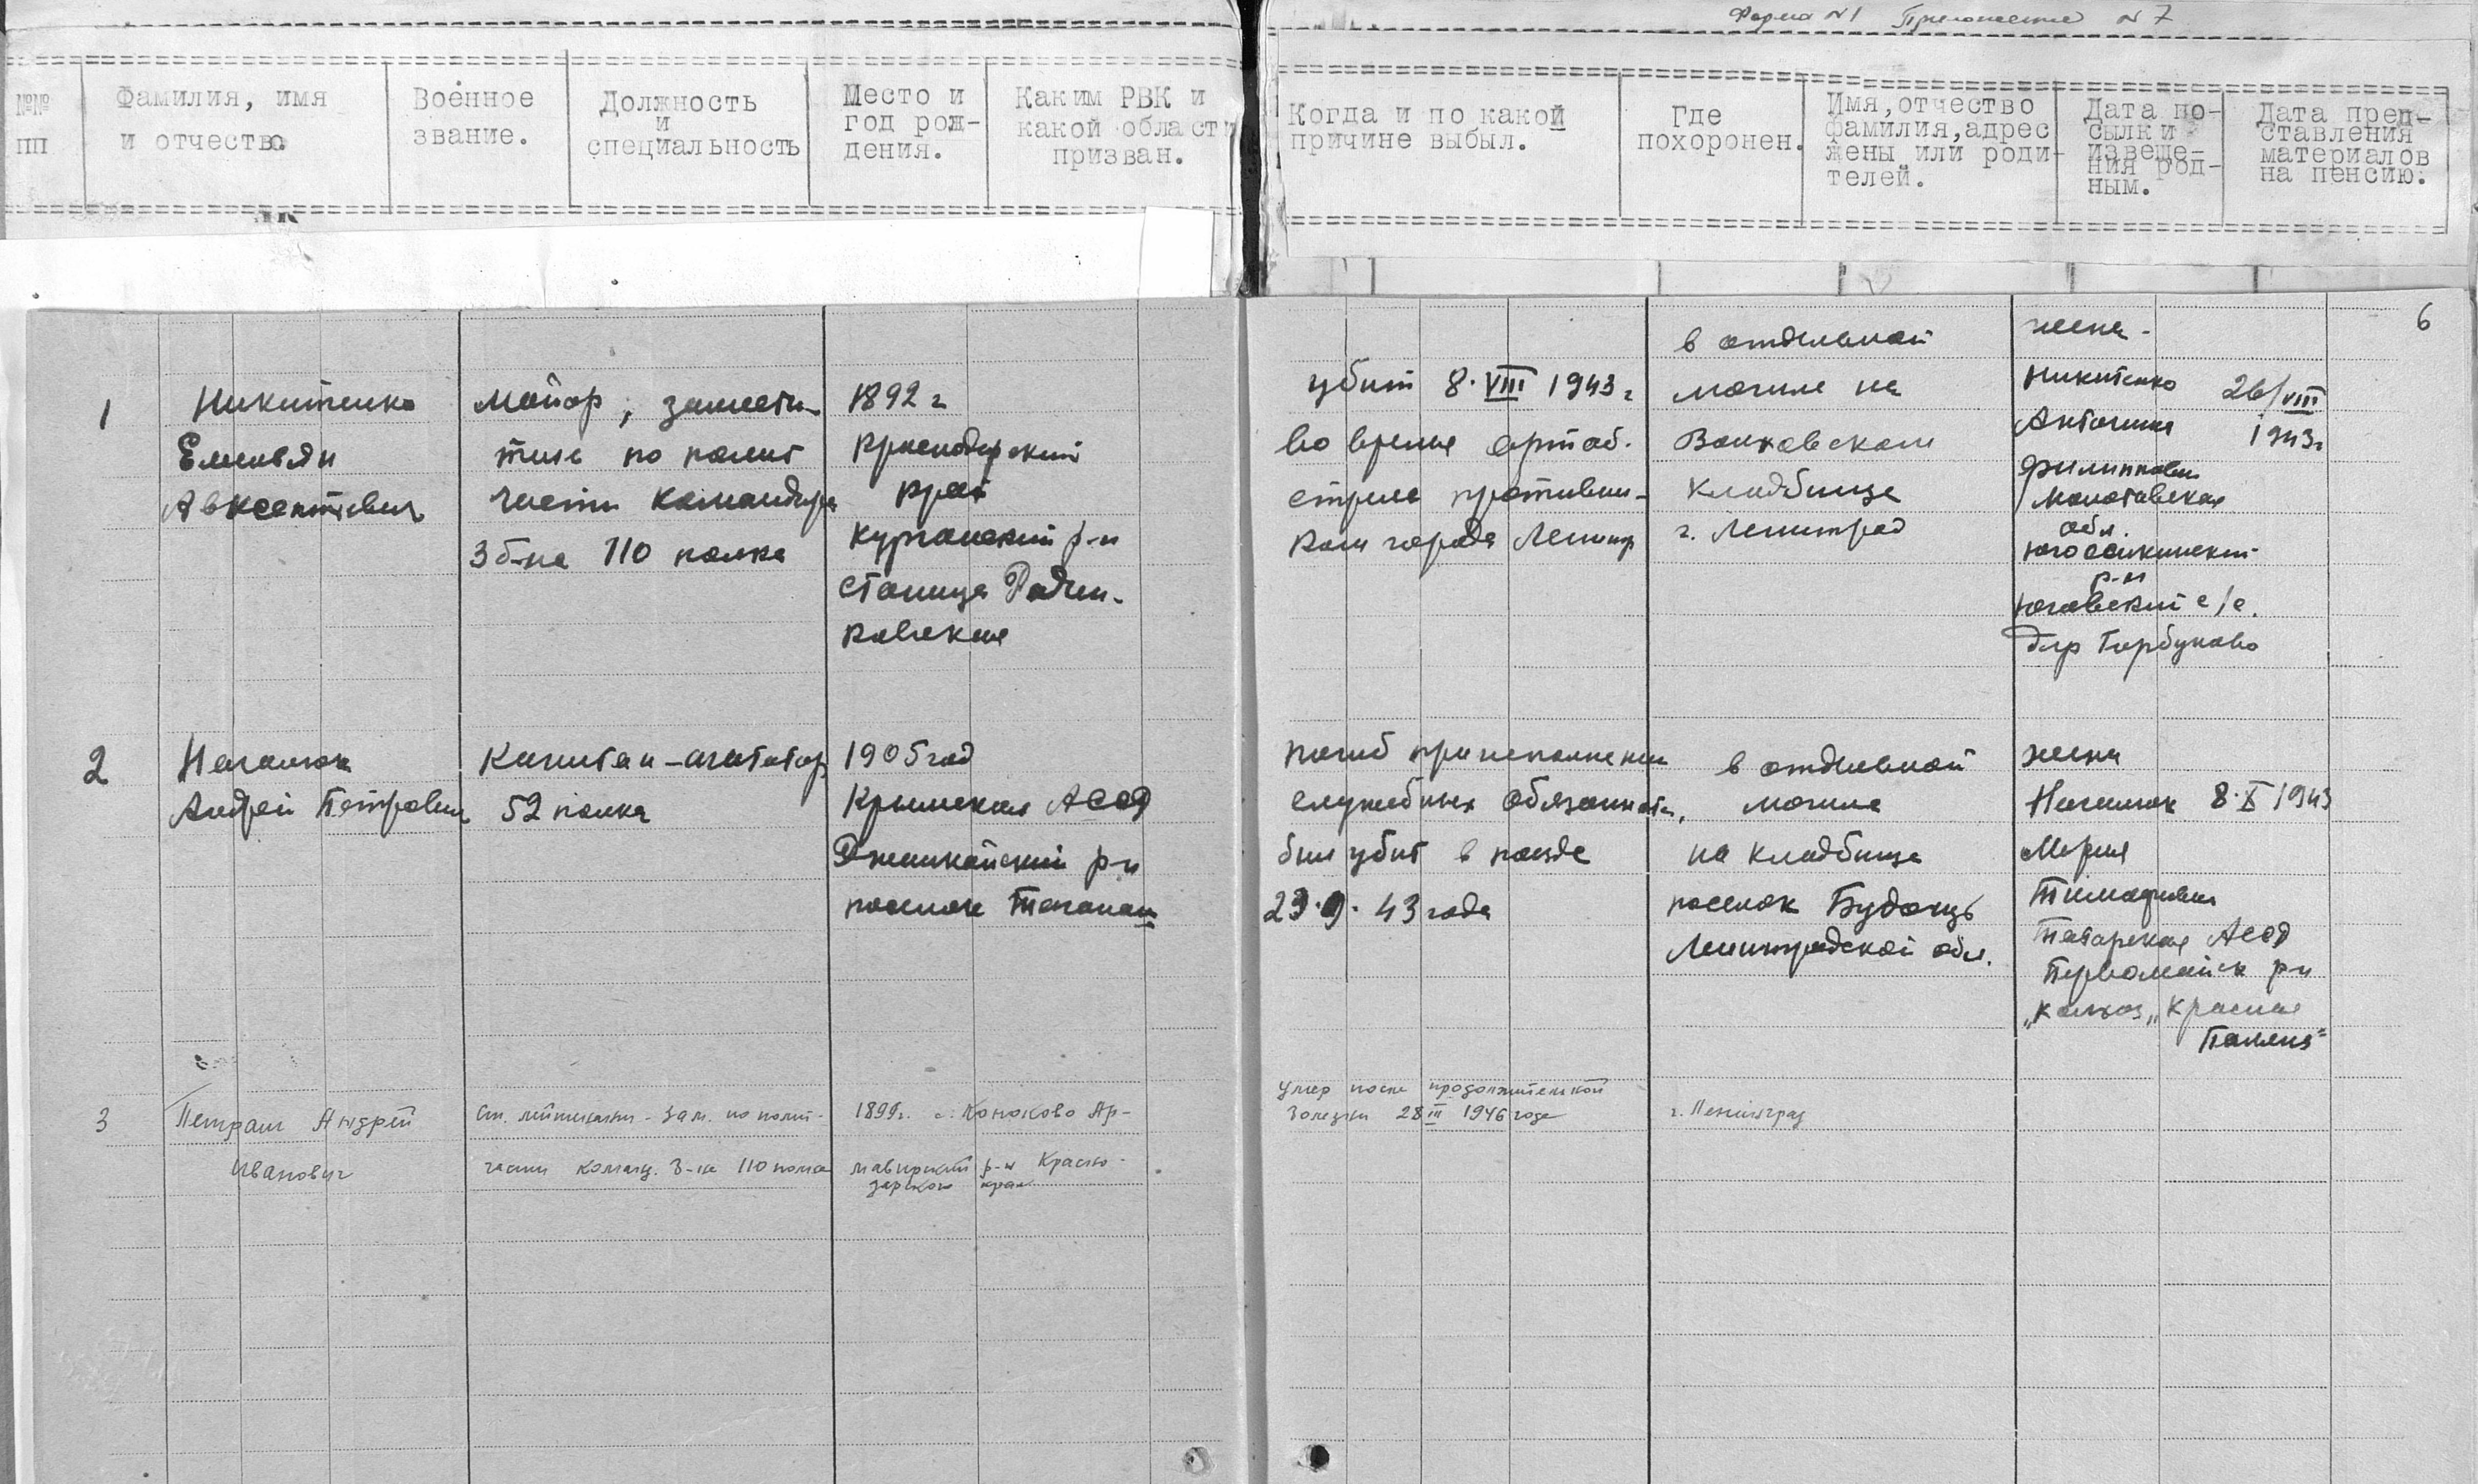 Форма №1 Приложение №7
№№ пп
Фамилия, имя
и отчество.
Военное
звание.
Должность
и
специальность
Место и
год рож-
дения.
Каким РВК и
какой области
призван.
Когда и по какой
причине выбыл.
Где
похоронен.
Имя, отчество
фамилия, адрес
жены или роди-
телей.
Дата по-
сылки
извеще-
ния род-
ным.
Дата пред-
ставления
материалов
на пенсию.
6
1
Никитенко
Емельян
Авксентьевич
Майор, замести-
тель по полит
части командира
3 б-на 110 полка
1892 г
Краснодарский
край
Курганский р-н
станица
убит 8.VIII 1943 г
во время артоб-
стрела противни-
ком города Ленингр
в отдельной
могиле на
Волковском
кладбище
г. Ленинград
жена -
Никитенко
Антонина
Филипповна
Молотовская
обл.
р-н
Юговский с/с.
дер Горбуново
26/VIII
1943г
2
Андрей Петрович
Капитан-агитатор
52 полка
1905 год
Крымская АССР
Джанкойский р-н
поселок
погиб при исполнении
служебных обязанностей,
был убит в поезде
29.9.43 года
в отдельной
могиле
на кладбище
поселок Будогощь
Ленинградской обл.
жена
Мария
Тимофеевна
Татарская АССР
Первомайск р-н
„Колхоз „Красная
Поляна"
8.X 1943
3
Петраш Андрей
Иванович
Ст. лейтенант - зам. по полит-
части команд. 3-на 110 полка
1899г. с. Коноково Ар-
мавирский р-н Красно-
дарского края
Умер после продолжительной
болезни 28 III 1946 года
г. Ленинград